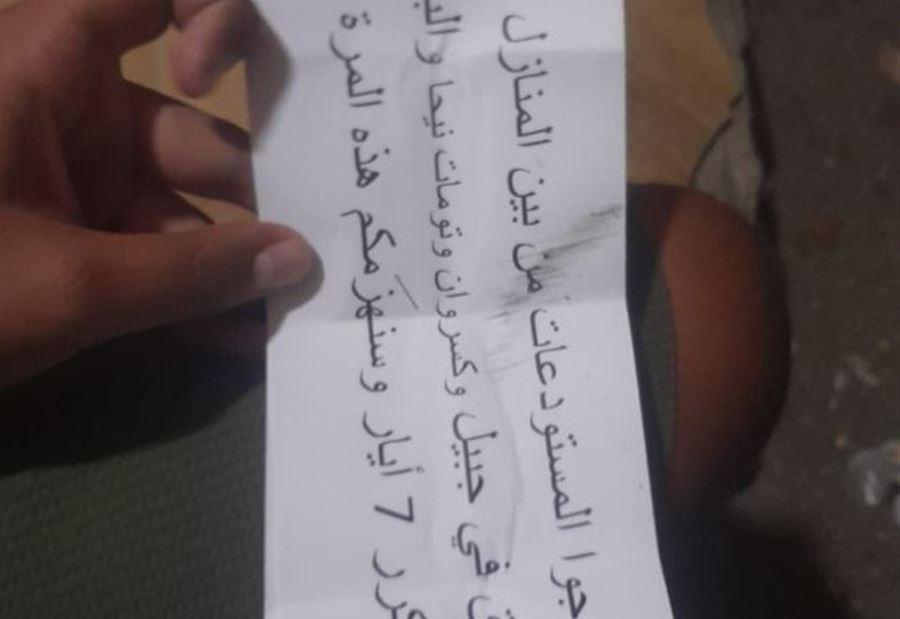 جوا المستودعات من بين المنازل
في جبيل وكسروان وتومات نيحا
كرر 7 أيار وسنهزمكم هذه المرة